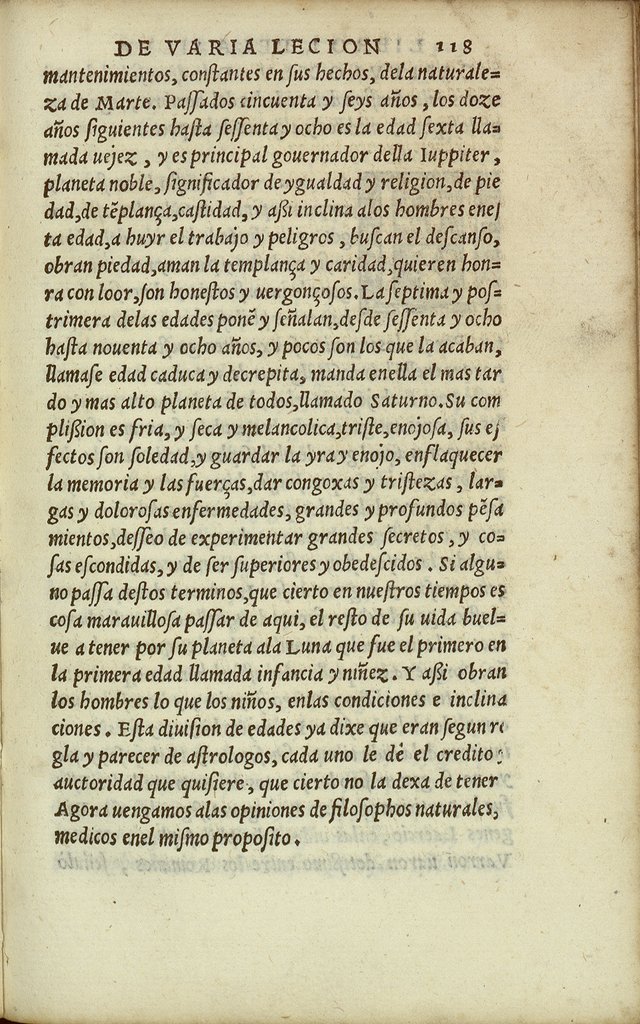 DE VARIA LECION 118
mantenimientos, conſtantes en ſus hechos, dela naturale=
za de Marte. Paſſados cincuenta y ſeys años, los doze
años ſiguientes haſta ſeſſenta y ocho es la edad ſexta lla=
mada uejez, y es principal gouernador della Iuppiter,
planeta noble, ſignificador de ygualdad y religion, de pie
dad, de tẽplança, caſtidad, y aßi inclina alos hombres eneſ
ta edad, a huyr el trabajo y peligros, buſcan el deſcanſo,
obran piedad, aman la templança y caridad, quieren hon=
ra con loor, ſon honeſtos y uergonçoſos. La ſeptima y poſ=
trimera delas edades ponẽ y ſeñalan, deſde ſeſſenta y ocho
haſta nouenta y ocho años, y pocos ſon los que la acaban,
llamaſe edad caduca y decrepita, manda enella el mas tar
do y mas alto planeta de todos, llamado Saturno. Su com
plißion es fria, y ſeca y melancolica, triſte, enojoſa, ſus eſ
fectos ſon ſoledad, y guardar la yra y enojo, enflaquecer
la memoria y las fuerças, dar congoxas y triſtezas, lar=
gas y doloroſas enfermedades, grandes y profundos pẽſa
mientos, deſſeo de experimentar grandes ſecretos, y co=
ſas eſcondidas, y de ſer ſuperiores y obedeſcidos. Si algu=
no paſſa deſtos terminos, que cierto en nueſtros tiempos es
coſa marauilloſa paſſar de aqui, el reſto de ſu uida buel=
ue a tener por ſu planeta ala Luna que fue el primero en
la primera edad llamada infancia y niñez. Y aßi obran
los hombres lo que los niños, enlas condiciones e inclina
ciones. Eſta diuiſion de edades ya dixe que eran ſegun re
gla y parecer de aſtrologos, cada uno le dè el credito
auctoridad que quiſiere, que cierto no la dexa de tener
Agora uengamos alas opiniones de filoſophos naturales,
medicos enel miſmo propoſito.